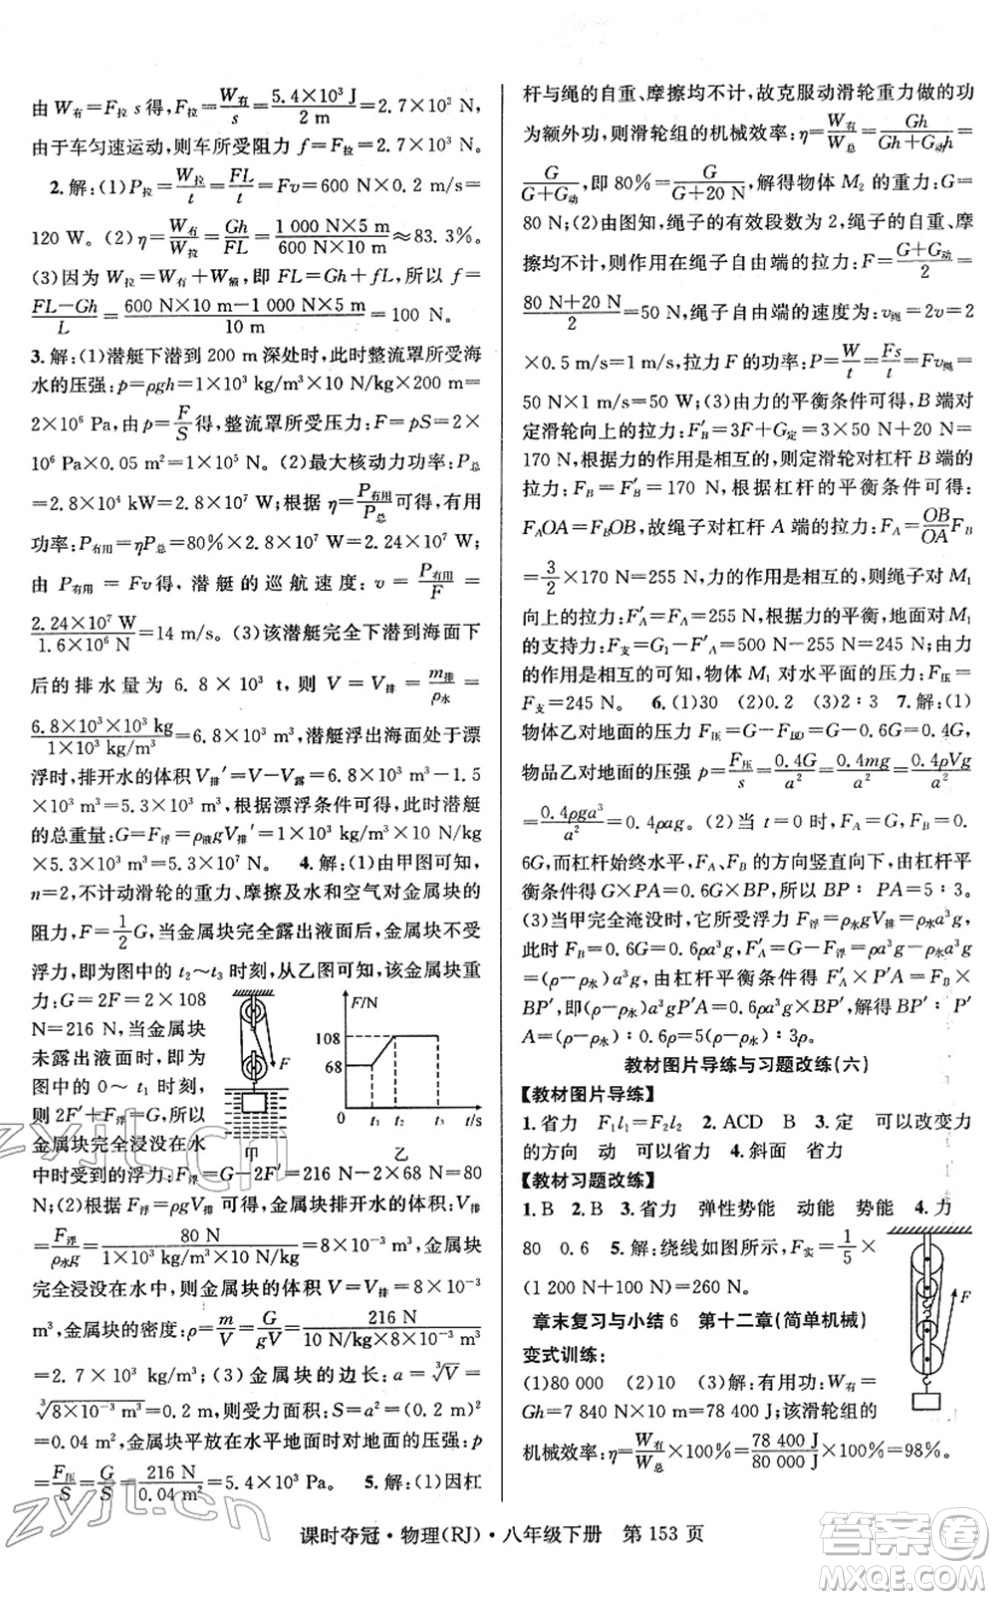 由 W有=F拉 s 得, F拉=W有/s=5.4×10³ J/2 m=2.7×10³ N,
由于车匀速运动,则车所受阻力 f=F拉=2.7×10³ N。
2.解:(1)P拉=W拉/t=FL/t=Fv=600 N×0.2 m/s=
120 W。(2)η=W有/W拉=Gh/FL=1 000 N×5 m/600 N×10 m≈83.3%。
(3)因为 W拉=W有+W额,即 FL=Gh+fL,所以 f=
FL-Gh/L=600 N×10 m-1 000 N×5 m/10 m=100 N。
3.解:(1)潜艇下潜到 200 m 深处时,此时整流罩所受海
水的压强:p=ρgh=1×10³ kg/m³×10 N/kg×200 m=
2×10⁶ Pa,由 p=F/S得,整流罩所受压力:F=pS=2×
10⁶ Pa×0.05 m²=1×10⁵ N。(2)最大核动力功率:P总
=2.8×10⁴ kW=2.8×10⁷ W;根据 η=P有用/P总可得,有用
功率:P有用=ηP总=80%×2.8×10⁷ W=2.24×10⁷ W;
由 P有用=Fv 得,潜艇的巡航速度:v=P有用/F=
2.24×10⁷ W/1.6×10⁶ N=14 m/s。(3)该潜艇完全下潜到海面下
后的排水量为 6.8×10³ t,则 V=V排=m排/ρ水=
6.8×10³×10³ kg/1×10³ kg/m³=6.8×10³ m³,潜艇浮出海面处于漂
浮时,排开水的体积 V排′=V-V露=6.8×10³ m³-1.5
×10³ m³=5.3×10³ m³,根据漂浮条件可得,此时潜艇
的总重量:G=F浮=ρ液gV排′=1×10³ kg/m³×10 N/kg
×5.3×10³ m³=5.3×10⁷ N。 4.解:(1)由甲图可知,
n=2,不计动滑轮的重力、摩擦及水和空气对金属块的
阻力,F=1/2G,当金属块完全露出液面后,金属块不受
浮力,即为图中的 t₂~t₃ 时刻,从乙图可知,该金属块重
力:G=2F=2×108
N=216 N,当金属块
未露出液面时,即为
图中的 0~t₁ 时刻,
则 2F′+F浮=G,此时
金属块完全浸没在水
中时受到的浮力:F浮=G-2F′=216 N-2×68 N=80
N;(2)根据 F浮=ρgV排可得,金属块排开水的体积:V排
=F浮/ρ水g=80 N/1×10³ kg/m³×10 N/kg=8×10⁻³ m³,因为金属块
完全浸没在水中,则金属块的体积 V=V排=8×10⁻³
m³,金属块的密度:ρ=m/V=G/gV=216 N/10 N/kg×8×10⁻³ m³
=2.7×10³ kg/m³;(3)金属块的边长:a=³√V=
³√8×10⁻³ m³=0.2 m,则受力面积:S=a²=(0.2 m)²=
0.04 m²,金属块平放在水平地面时对地面的压强:p
=F压/S=G/S=216 N/0.04 m²=5.4×10³ Pa。 5.解:(1)因杠
F/N
108
68
0 t₁ t₂ t₃ t/s
F
甲 乙
杆与绳的自重、摩擦均不计,故克服动滑轮重力做的功
为额外功,则滑轮组的机械效率:η=W有/W总=Gh/Gh+G动h=
G/G+G动,即 80%=G/G+20 N,解得物体 M₂ 的重力:G=
80 N;(2)由图知,绳子的有效段数为 2,绳子的自重、摩
擦均不计,所以作用在绳子自由端的拉力:F=G+G动/2=
80 N+20 N/2=50 N,绳子自由端的速度:v绳=2v=2
×0.5 m/s=1 m/s,拉力 F 的功率:P=W/t=Fs/t=Fv绳=
50 N×1 m/s=50 W;(3)由力的平衡条件可得,B 端对
定滑轮向上的拉力:F′B=3F+G定=3×50 N+20 N=
170 N,因力的作用是相互的,则定滑轮对杠杆 B 端的
拉力:FB=F′B=170 N,根据杠杆的平衡条件可得:
FAOA=FBOB,故绳子对杠杆 A 端的拉力:FA=OB/OA FB
=3/2×170 N=255 N,力的作用是相互的,则绳子对 M₁
向上的拉力:F′A=FA=255 N,根据力的平衡,地面对M₁
的支持力:F支=G₁-F′A=500 N-255 N=245 N;由力
的作用是相互的可知,物体 M₁ 对水平面的压力:F压=
F支=245 N。 6.(1)30 (2)0.2 (3)2∶3 7.解:(1)
物体乙对地面的压力 F压=G-FBD=G-0.6G=0.4G,
物品乙对地面的压强 p=F压/s=0.4G/a²=0.4mg/a²=0.4ρVg/a²
=0.4ρga³/a²=0.4ρag。(2)当 t=0 时,FA=G,FB=0.
6G,而杠杆始终水平,FA、FB的方向竖直向下,由杠杆平
衡条件得 G×PA=0.6G×BP,所以 BP∶PA=5∶3。
(3)当甲完全淹没时,它所受浮力 F浮=ρ水gV排=ρ水a³g,
此时 FB=0.6G=0.6ρa³g,F′A=G-F浮=ρa³g-ρ水a³g
=(ρ-ρ水)a³g;由杠杆平衡条件得,F′A×P′A=FB×
BP′,即(ρ-ρ水)a³gP′A=0.6ρa³g×BP′,解得 BP′∶P′
A=(ρ-ρ水)∶0.6ρ=5(ρ-ρ水)∶3ρ。
教材图片导练与习题改练(六)
【教材图片导练】
1.省力 F₁l₁=F₂l₂ 2.ACD B 3.定 可以改变力
的方向 动 可以省力 4.斜面 省力
【教材习题改练】
1.B 2.B 3.省力 弹性势能 动能 势能 4.力
80 0.6 5.解:绕线如图所示,F实=1/5×
(1 200 N+100 N)=260 N。
章末复习与小结6 第十二章(简单机械)
变式训练:
(1)80 000 (2)10 (3)解:有用功:W有=
Gh=7 840 N×10 m=78 400 J;该滑轮组的
机械效率:η=W有/W总×100%=78 400 J/80 000 J×100%=98%。
F
课时夺冠·物理(RJ)·八年级下册 第 153 页
zyjl.cn
zyjl.cn
答案圈
MXQE.COM